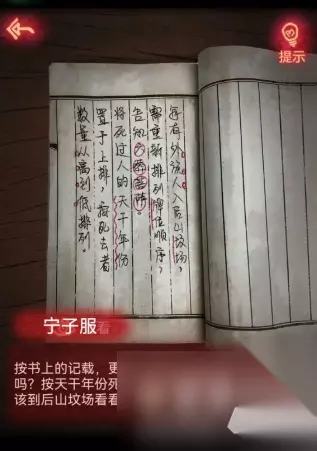 提示
每有外族人入后山坟场，
需重新排列牌位顺序，
告知
将死过人的天干年份
置于上排，按死去者
数量从高到低排列。
宁子服
看
按书上的记载，更
吗？按天干年份死
该到后山坟场看看